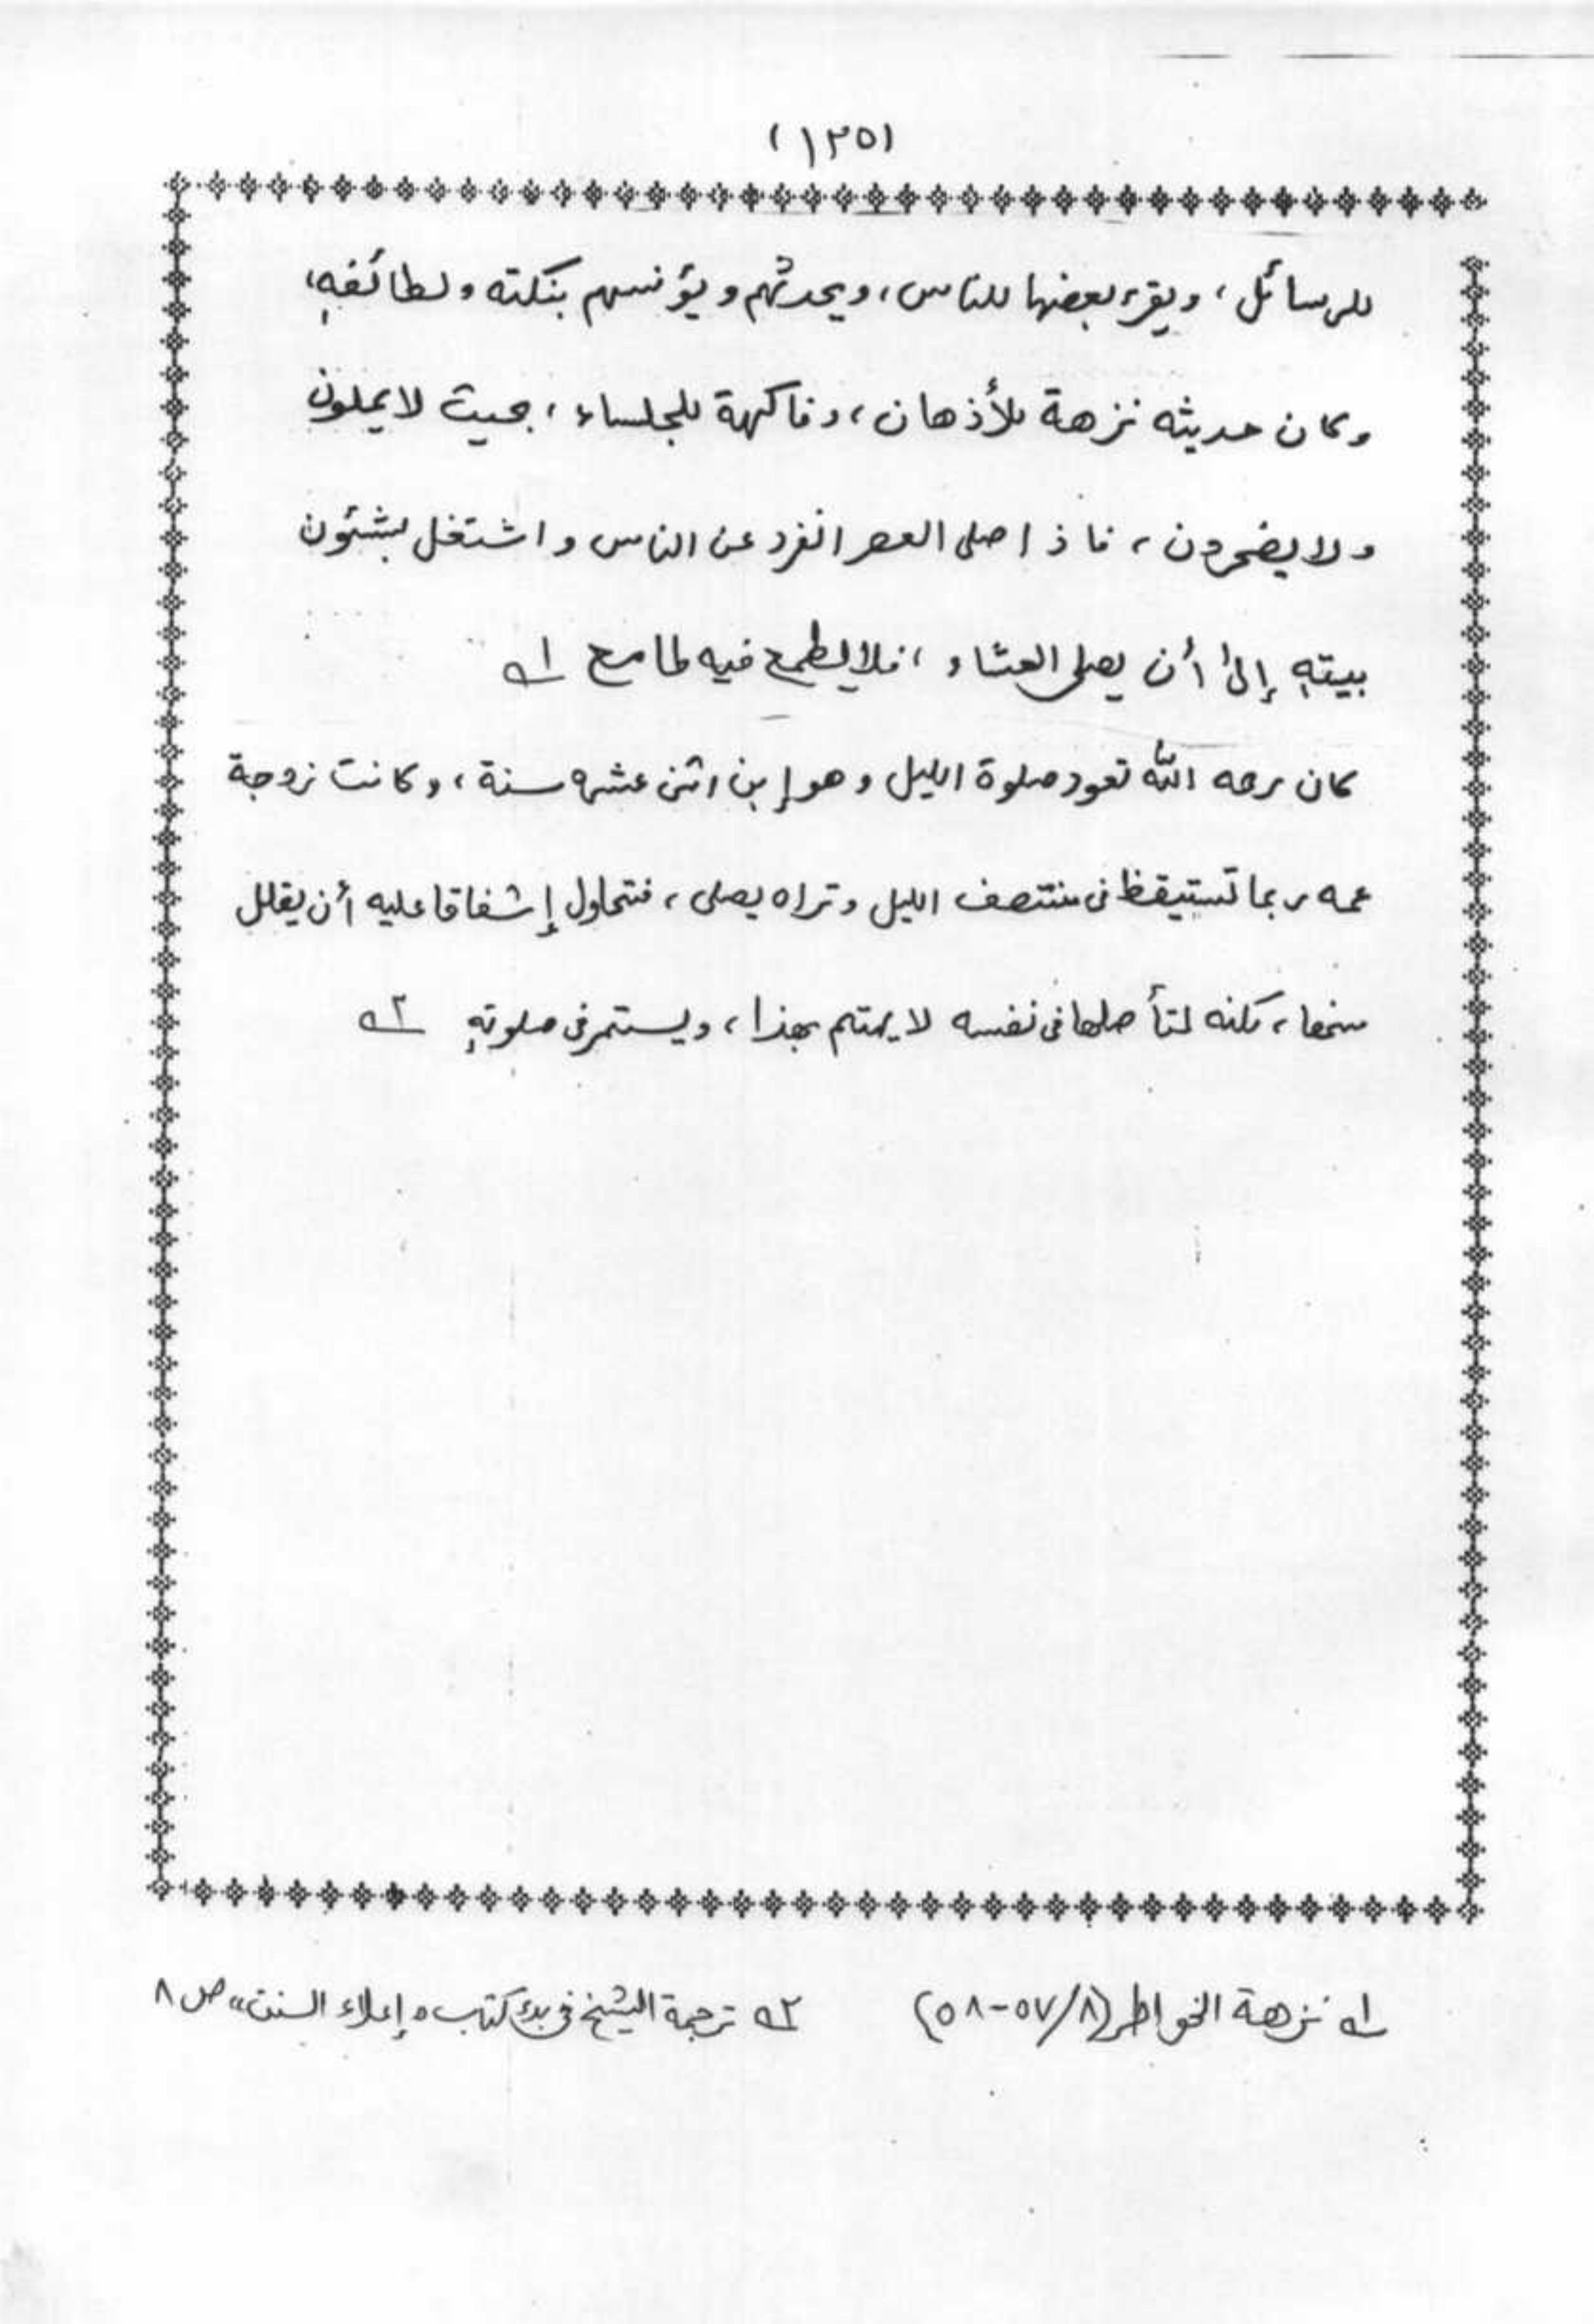 (١٢٥)
للرسائل، ويقرء بعضها للناس، ويحدثهم ويؤنسهم بنكته ولطائفه،
وكان حديثه نزهة للأذهان، وفاكهة للجلساء، بحيث لا يملون
ولا يضجرون، فاذا صلى العصر انفرد عن الناس واشتغل بشئون
بيته إلى أن يصلى العشاء، فلا يطمع فيه طامع ١ـه
كان رحمه الله تعود صلوة الليل وهو إبن اثنى عشره سنة، وكانت زوجة
عمه ربما تستيقظ فى منتصف الليل وتراه يصلى، فتحاول إشفاقا عليه أن يقلل
منها، لكنه لتأصلها فى نفسه لا يهتم بهذا، ويستمر فى صلوته ٢ـه
١ـه نزهة الخواطر (٥٧/٨-٥٨) ٢ـه ترجمة الشيخ فى بدء كتاب "إعلاء السنن" ص ٨